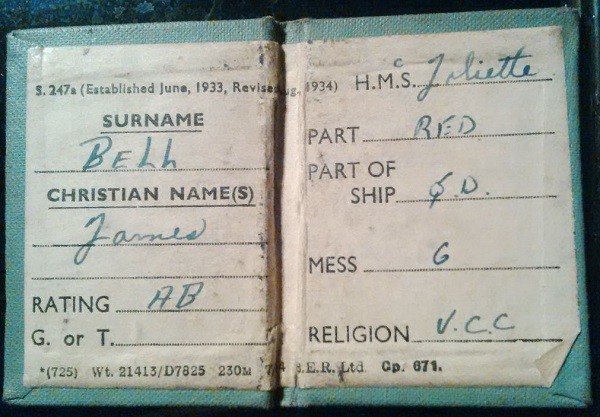 S. 247a (Established June, 1933, Revised Aug. 1934)
SURNAME
BELL
CHRISTIAN NAME(S)
James
RATING AB
G. or T.
*(725) Wt. 21413/D7825 230M E.R. Ltd. Gp. 671.
H.M.C.S. Joliette
PART RED
PART OF
SHIP Q.D.
MESS 6
RELIGION U.C.C